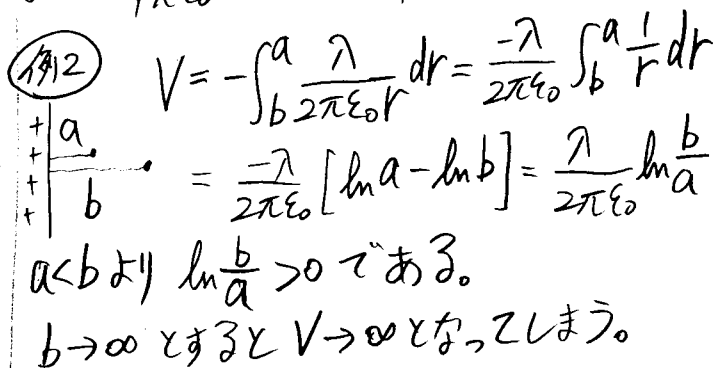 例2 V = -∫_b^a λ/(2πε₀r) dr = -λ/(2πε₀) ∫_b^a 1/r dr
+ a
+
+ b
+
= -λ/(2πε₀) [ln a - ln b] = λ/(2πε₀) ln b/a
a<bより ln b/a >0 である。
b→∞とするとV→∞となってしまう。